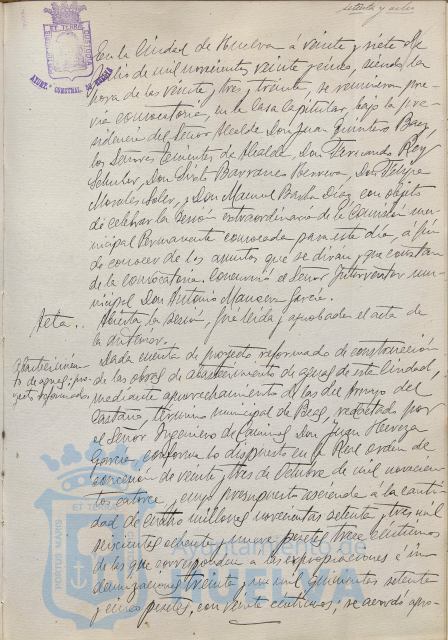 setenta y ocho
En la Ciudad de Huelva á veinte y siete de
Julio de mil novecientos veinte y cinco, siendo la
hora de las veinte y tres y treinta, se reunieron pre-
via convocatoria, en la Casa Capitular, bajo la pre-
sidencia del Señor Alcalde Don Juan Quintero Baez,
los Señores Tenientes de Alcalde, Don Fernando Rey
Don Sixto Barranco Borrero, Don Felipe
Morales Soler, y Don Manuel Barba Diaz, con objeto
de celebrar la Sesión extraordinaria de la Comisión mu-
nicipal Permanente convocada para este día, á fin
de conocer de los asuntos que se dirán y que constan
de la convocatoria. Concurrió el Señor Interventor mu-
nicipal Don Antonio García.
Acta. Abierta la sesión, fué leída y aprobada el acta de
la anterior.
Abastecimien-
to de aguas; pro-
yecto reformado.
Dada cuenta de proyecto reformado de construcción
de las obras de abastecimiento de aguas de esta Ciudad,
mediante aprovechamiento de las del Arroyo del
Castaño, término municipal de Beas, redactado por
el Señor Ingeniero de Caminos Don Juan
García conforme lo dispuesto en la Real orden de
concesión de veinte y tres de Octubre de mil novecien-
tos catorce, cuyo presupuesto asciende á la canti-
dad de cuatro millones novecientas setenta y tres mil
seiscientas ochenta y nueve pesetas trece céntimos
de las que corresponden a las expropiaciones é in-
demnizaciones treinta y un mil quinientas setenta
y cinco pesetas, con veinte céntimos, se acordó apro-
ET TERRÆ CUSTODIA
AYUNT.º CONSTNAL. DE HUELVA
PORTUS MARIS
ET TERRÆ
Ayuntamiento de
HUELVA